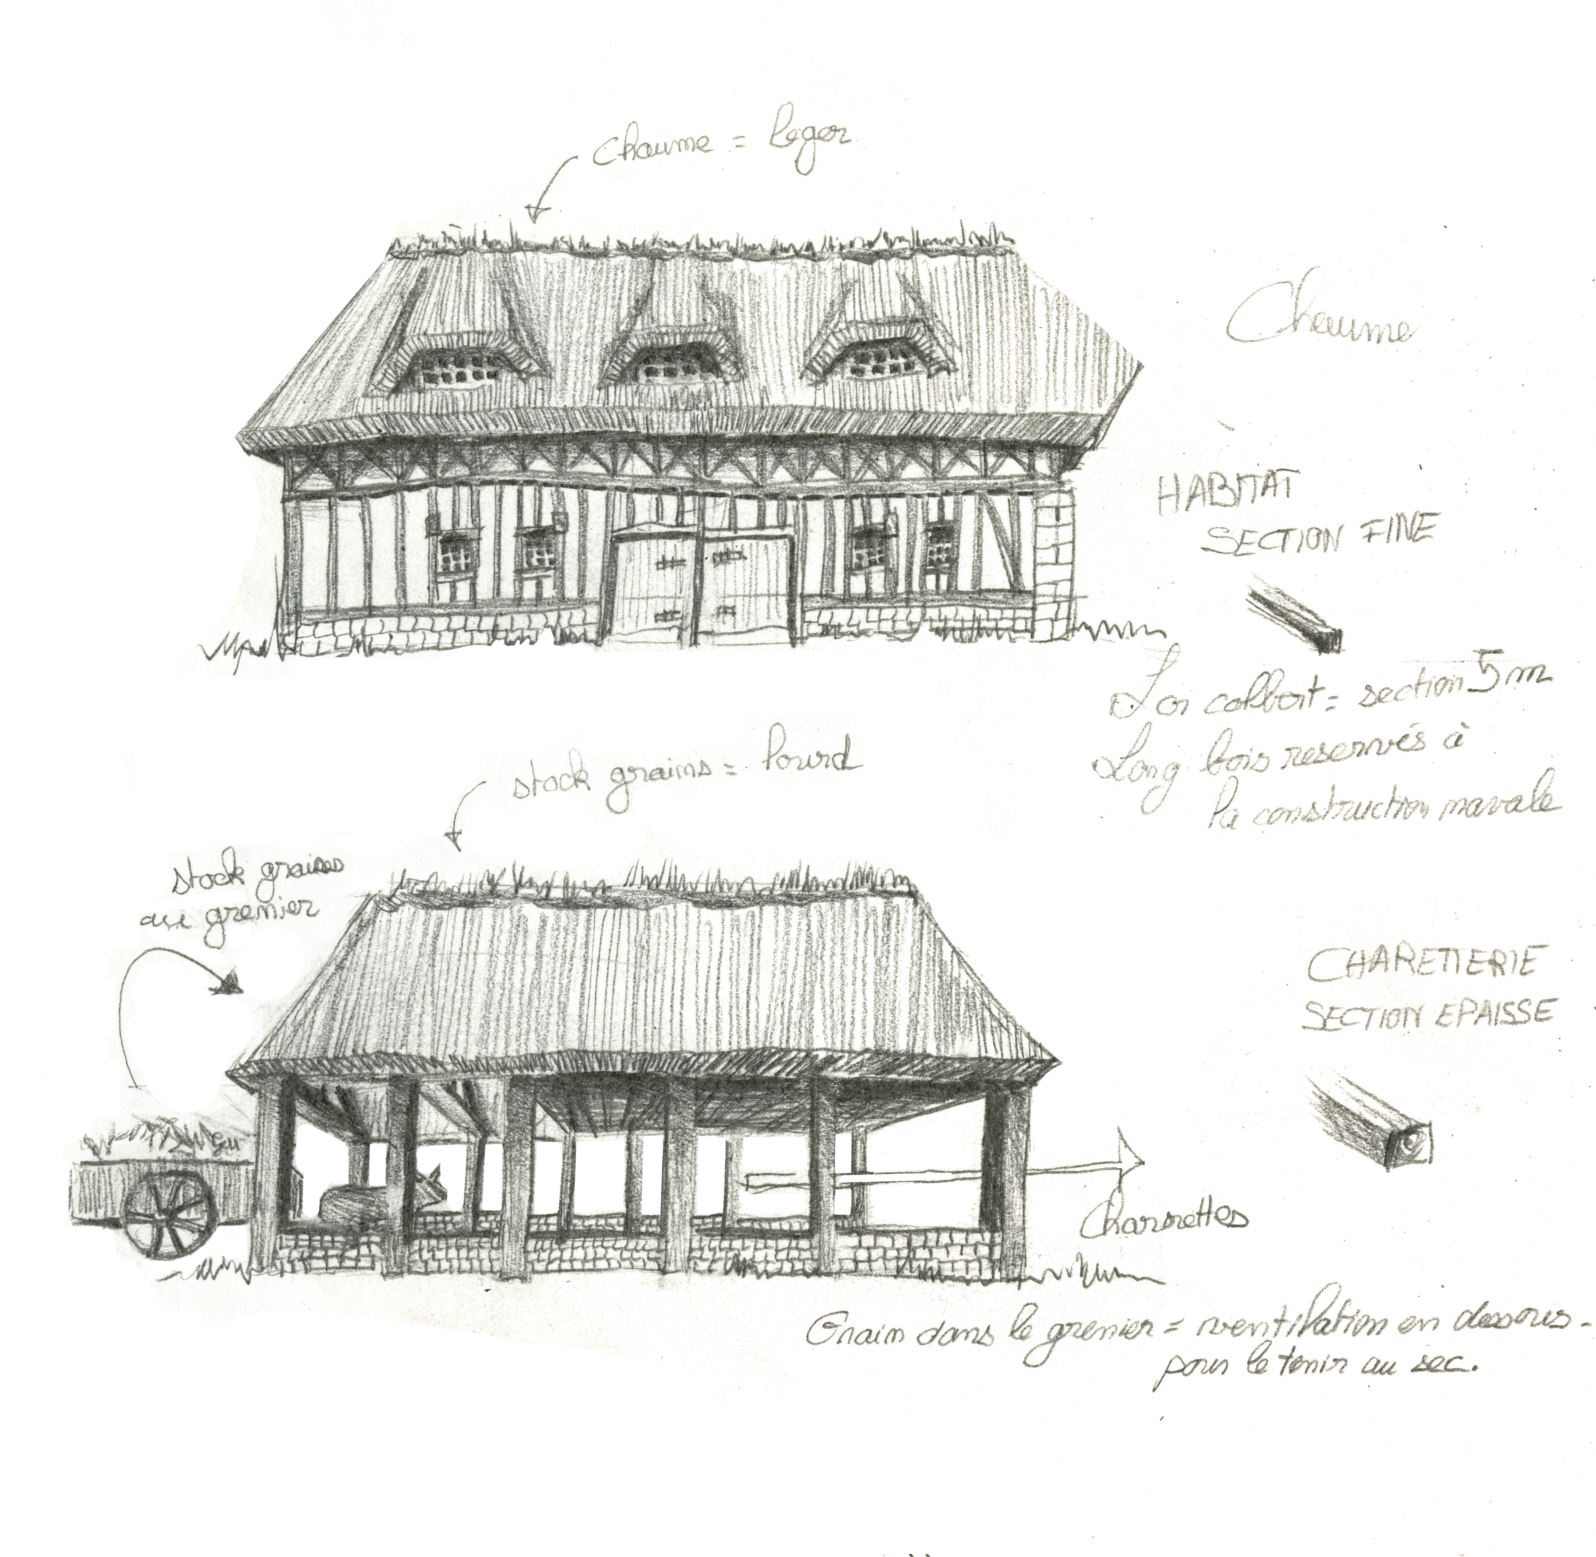 chaume = leger
Chaume
HABITAT
SECTION FINE
Loi colbert = section 5m
Long bois reservés à
la construction navale
stock grains = lourd
stock graines
au grenier
CHARETTERIE
SECTION EPAISSE
Charrettes
Grain dans le grenier = ventilation en dessous.
pour le tenir au sec.